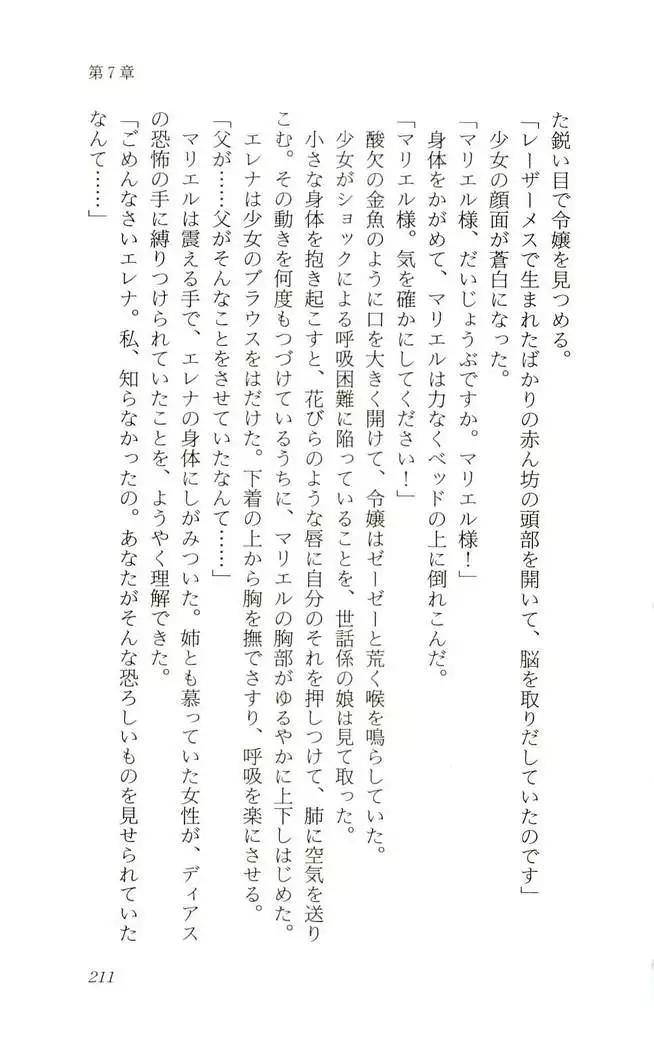 第7章
た鋭い目で令嬢を見つめる。
「レーザーメスで生まれたばかりの赤ん坊の頭部を開いて、脳を取りだしていたのです」
少女の顔面が蒼白になった。
「マリエル様、だいじょうぶですか。マリエル様！」
身体をかがめて、マリエルは力なくベッドの上に倒れこんだ。
「マリエル様。気を確かにしてください！」
酸欠の金魚のように口を大きく開けて、令嬢はゼーゼーと荒く喉を鳴らしていた。
少女がショックによる呼吸困難に陥っていることを、世話係の娘は見て取った。
小さな身体を抱き起こすと、花びらのような唇に自分のそれを押しつけて、肺に空気を送り
こむ。その動きを何度もつづけているうちに、マリエルの胸部がゆるやかに上下しはじめた。
エレナは少女のブラウスをはだけた。下着の上から胸を撫でさすり、呼吸を楽にさせる。
「父が……父がそんなことをさせていたなんて……」
マリエルは震える手で、エレナの身体にしがみついた。姉とも慕っていた女性が、ディアス
の恐怖の手に縛りつけられていたことを、ようやく理解できた。
「ごめんなさいエレナ。私、知らなかったの。あなたがそんな恐ろしいものを見せられていた
なんて……」
211